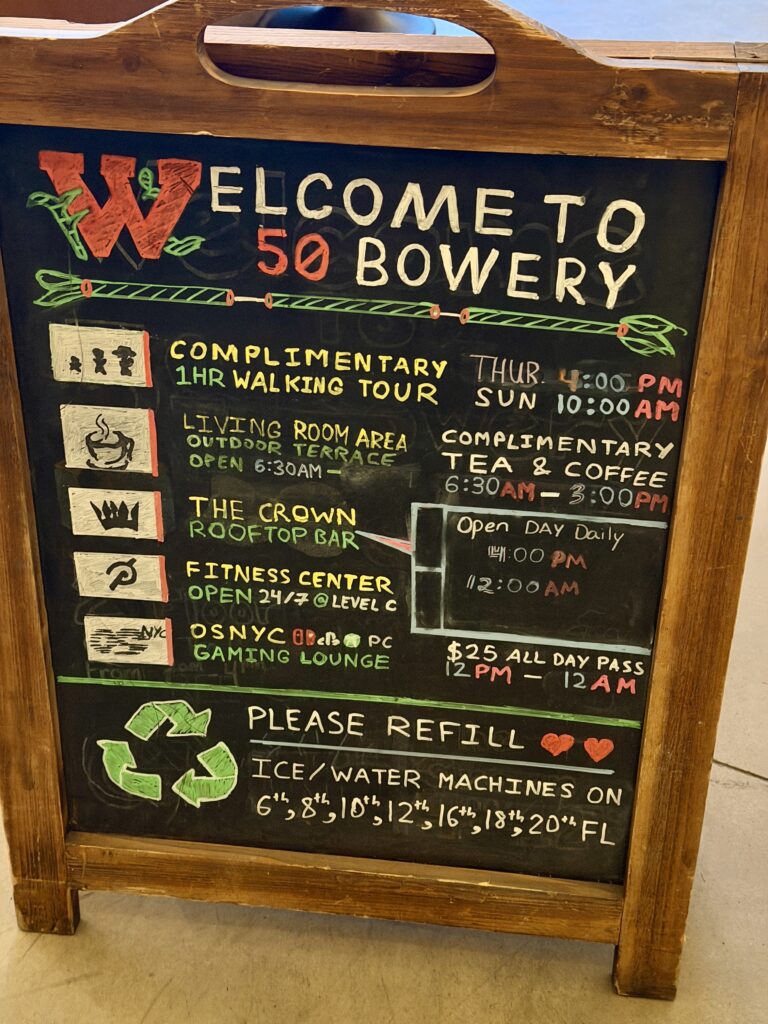 WELCOME TO
50 BOWERY
COMPLIMENTARY
1HR WALKING TOUR
THUR. 4:00 PM
SUN 10:00 AM
LIVING ROOM AREA
OUTDOOR TERRACE
OPEN 6:30AM –
COMPLIMENTARY
TEA & COFFEE
6:30AM – 3:00PM
THE CROWN
ROOFTOP BAR
Open DAY Daily
4:00 PM
12:00 AM
FITNESS CENTER
OPEN 24/7 @ LEVEL C
NYC
OSNYC PC
GAMING LOUNGE
$25 ALL DAY PASS
12PM – 12AM
PLEASE REFILL
ICE/WATER MACHINES ON
6th, 8th, 10th, 12th, 16th, 18th, 20th FL